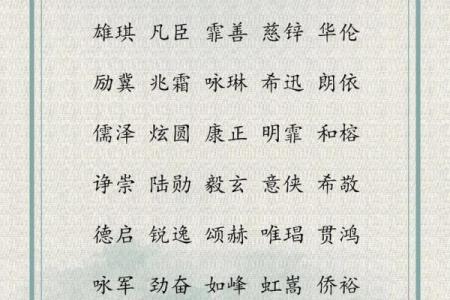 雄琪 凡臣 霏善 慈锌 华伦
励冀 兆霜 咏琳 希迅 朗依
儒泽 炫圆 康正 明霏 和榕
诤崇 陆勋 毅玄 意侠 希敬
德启 锐逸 颂赫 唯琩 贯鸿
咏军 劲奋 如峰 虹嵩 侨裕